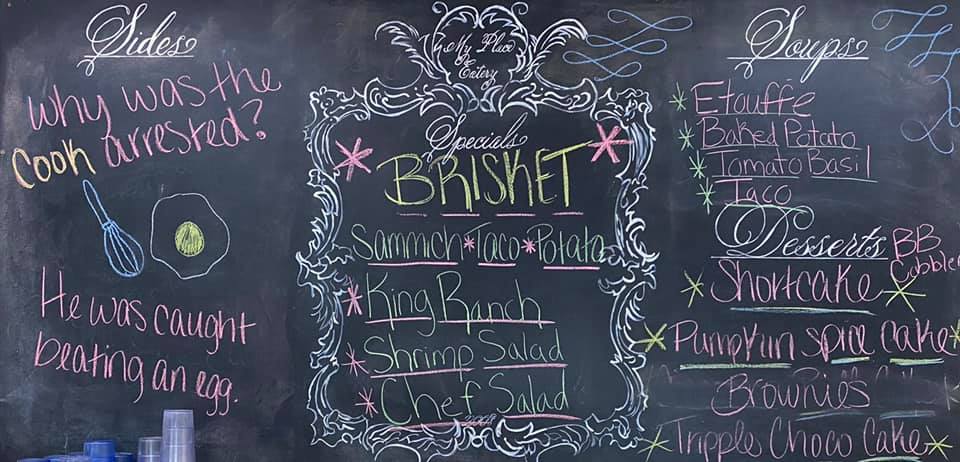 Sides
why was the
cook arrested?
He was caught
beating an egg.
My Place
Eatery
Specials
BRISKET
Sammich*Taco*Potato
King Ranch
Shrimp Salad
Chef Salad
Soups
Etouffe
Baked Potato
Tomato Basil
Taco
Desserts
BB
Cobbler
Shortcake
Pumpkin spice cake
Brownies
Tripple Choco Cake